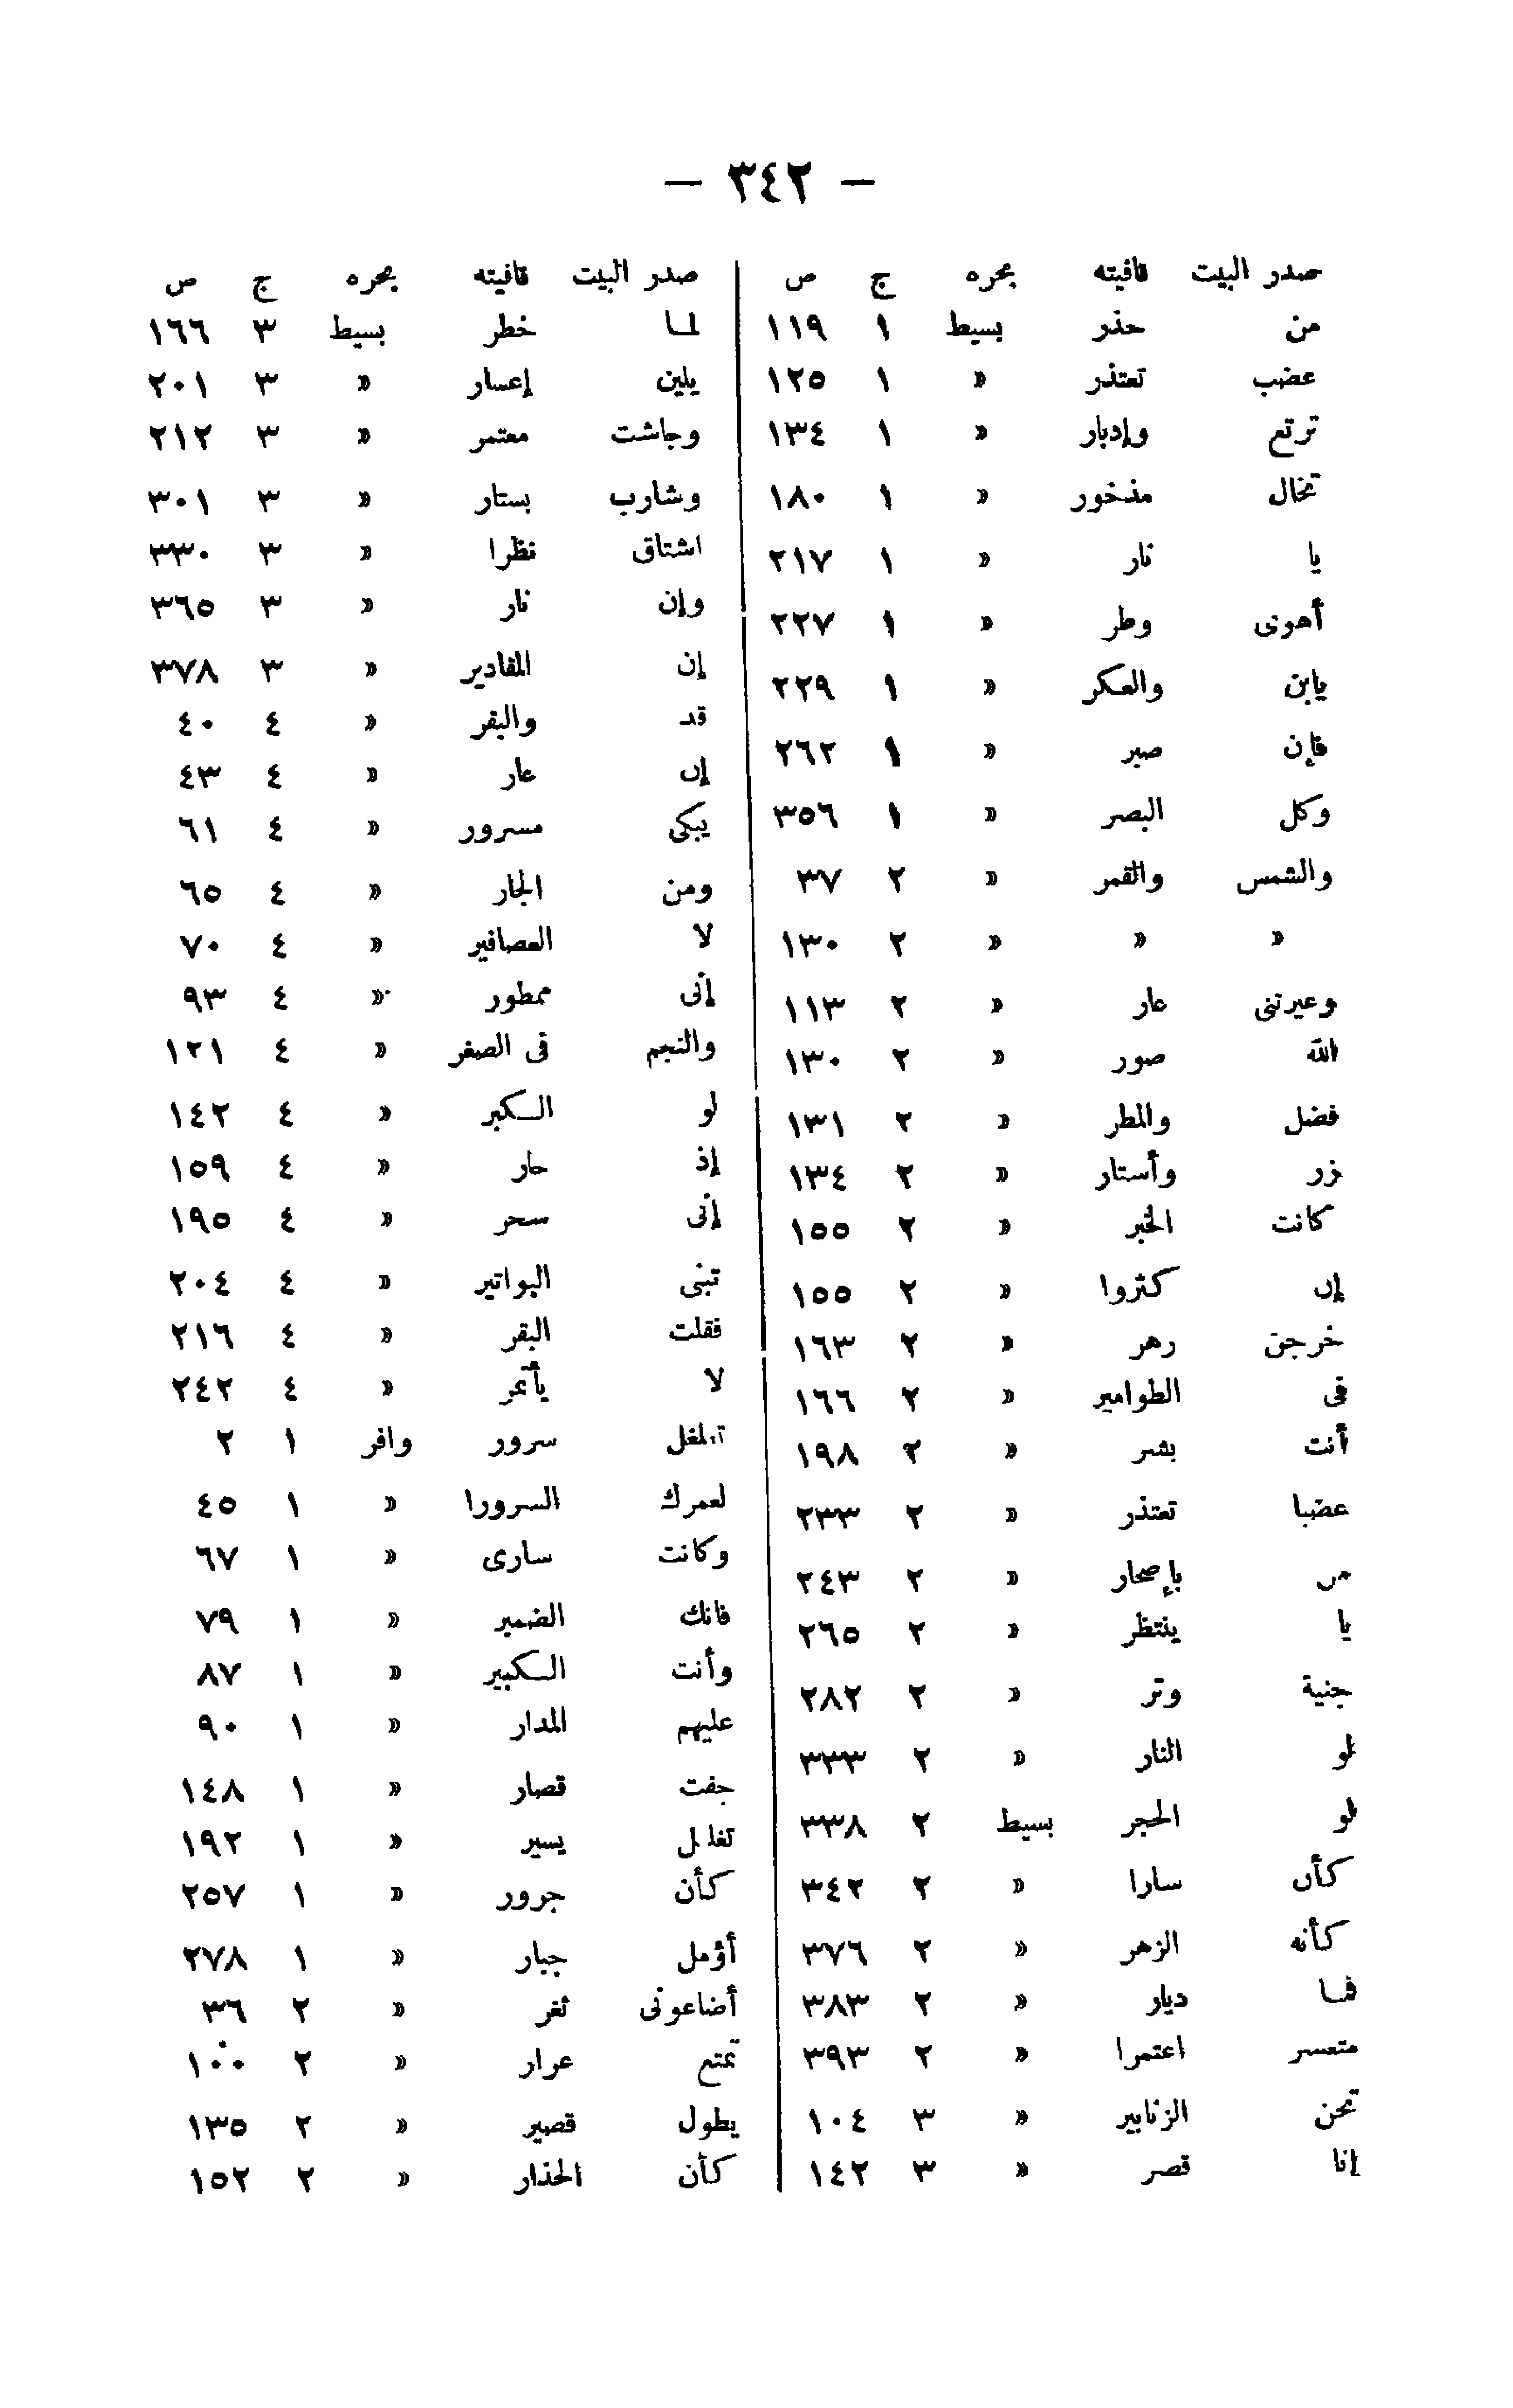 — ٣٤٢ —
صدر البيت قافيته بحره ج ص
من حذر بسيط ١ ١١٩
عضب تعتذر » ١ ١٢٥
ترتع وإدبار » ١ ١٣٤
تخال مذخور » ١ ١٨٠
يا نار » ١ ٢١٧
أهوى وطر » ١ ٢٢٧
يابن والعكر » ١ ٢٢٩
فإن صبر » ١ ٢٦٢
وكل البصر » ١ ٣٥٦
والشمس والقمر » ٢ ٣٧
» » » ٢ ١٣٠
وعيرتنى عار » ٢ ١١٣
الله صور » ٢ ١٣٠
فضل والمطر » ٢ ١٣١
زر وأستار » ٢ ١٣٤
كانت الخبر » ٢ ١٥٥
إن كثروا » ٢ ١٥٥
خرجن زهر » ٢ ١٦٣
فى الطوامير » ٢ ١٦٦
أنت بشر » ٢ ١٩٨
عضبا تعتذر » ٢ ٢٣٣
من بإصحار » ٢ ٢٤٣
يا ينتظر » ٢ ٢٦٥
جنية وتر » ٢ ٢٨٢
لو النار » ٢ ٣٣٣
لو الحجر بسيط ٢ ٣٣٨
كأن سارا » ٢ ٣٤٢
كأنه الزهر » ٢ ٣٧٦
فمـا ديار » ٢ ٣٨٣
متعسر اعتمرا » ٢ ٣٩٣
نحن الزنابير » ٣ ١٠٤
إنا قصر » ٣ ١٤٢
صدر البيت قافيته بحره ج ص
لمـا خطر بسيط ٣ ١٦٦
يلين إعسار » ٣ ٢٠١
وجاشت معتمر » ٣ ٢١٢
وشارب بستار » ٣ ٣٠١
اشتاق نظرا » ٣ ٣٣٠
وإن نار » ٣ ٣٦٥
إن المقادير » ٣ ٣٧٨
قد والبقر » ٤ ٤٠
إن عار » ٤ ٤٣
يبكى مسرور » ٤ ٦١
ومن الجار » ٤ ٦٥
لا العصافير » ٤ ٧٠
إنى ممطور » ٤ ٩٣
والنجم فى الصغر » ٤ ١٢١
لو الـكبر » ٤ ١٤٢
إذ حار » ٤ ١٥٩
إنى سحر » ٤ ١٩٥
تبنى البواتير » ٤ ٢٠٤
فقلت البقر » ٤ ٢١٦
لا يأتمر » ٤ ٢٤٢
تغلغل سرور وافر ١ ٢
لعمرك السرورا » ١ ٤٥
وكانت سارى » ١ ٦٧
فانك الضمير » ١ ٧٩
وأنت الـكبير » ١ ٨٧
عليهم المدار » ١ ٩٠
جفت قصار » ١ ١٤٨
تغلغل يسير » ١ ١٩٢
كأن جرور » ١ ٢٥٧
أؤمل جبار » ١ ٢٧٨
أضاعونى ثغر » ٢ ٣٦
تمتع عرار » ٢ ١٠٠
يطول قصير » ٢ ١٣٥
كأن الحذار » ٢ ١٥٢